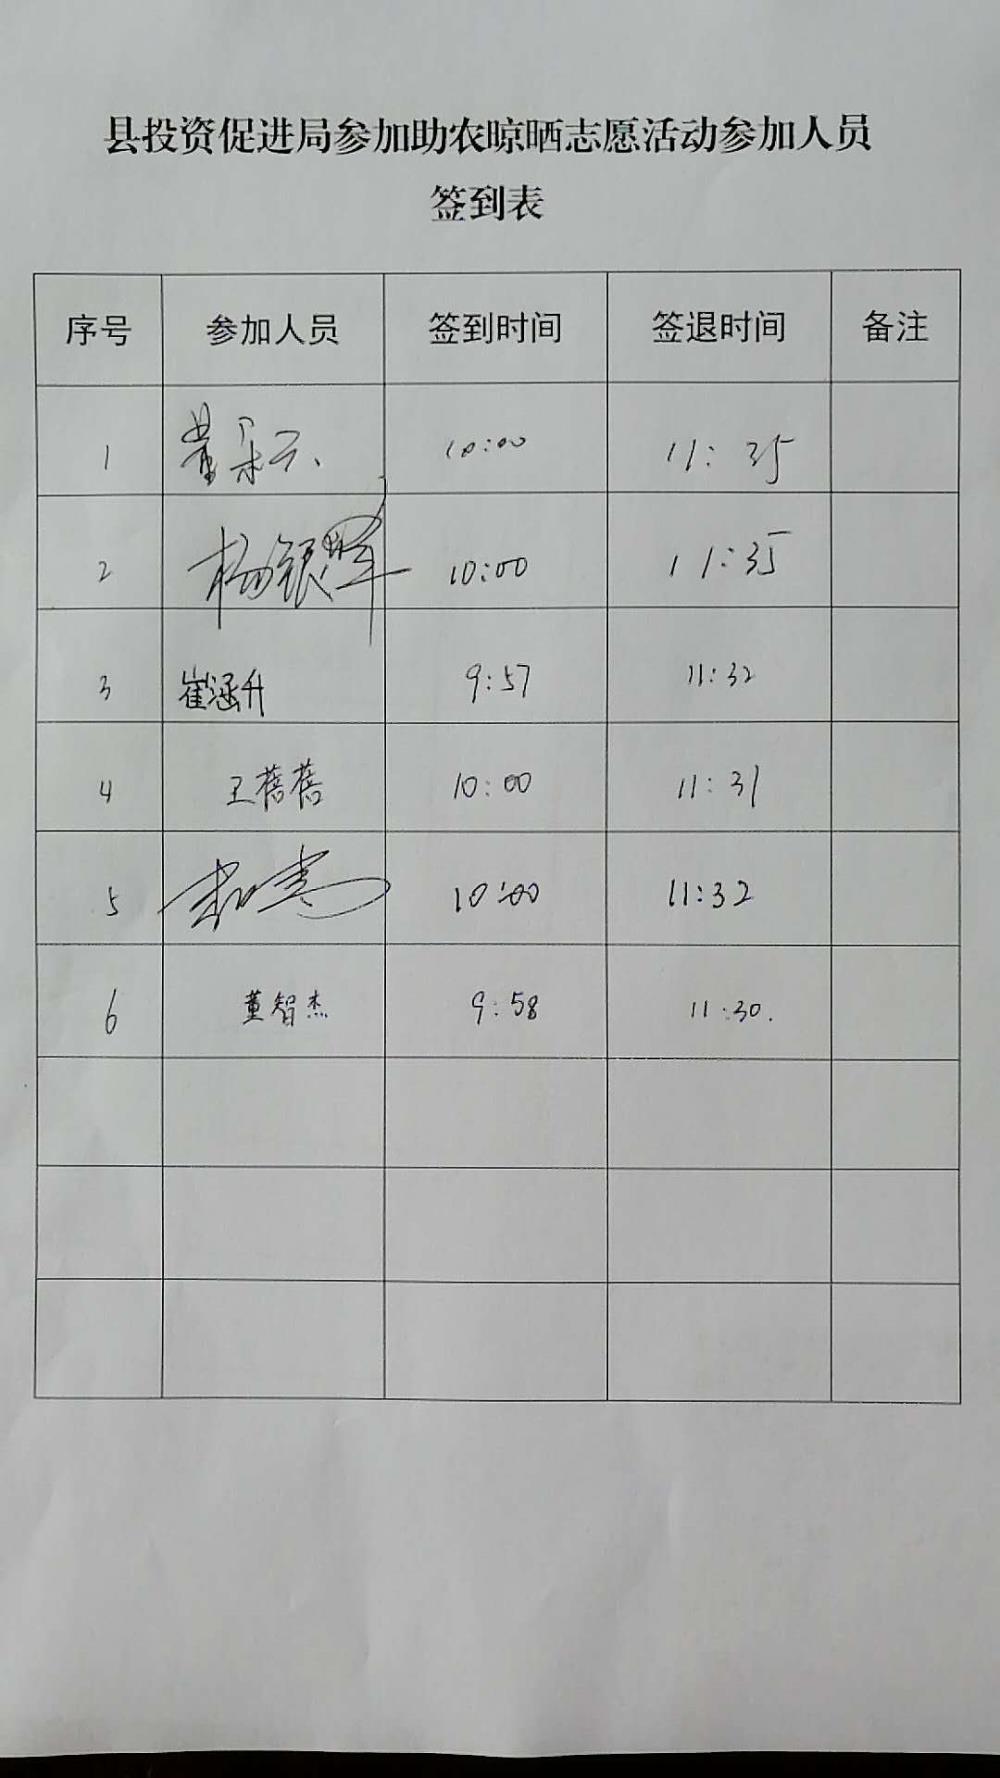 县投资促进局参加助农晾晒志愿活动参加人员
签到表
序号 参加人员 签到时间 签退时间 备注
1 董采云 10:00 11:35
2 杨银翠 10:00 11:35
3 崔涵升 9:57 11:32
4 王蓓蓓 10:00 11:31
5 10:00 11:32
6 董智杰 9:58 11:30.